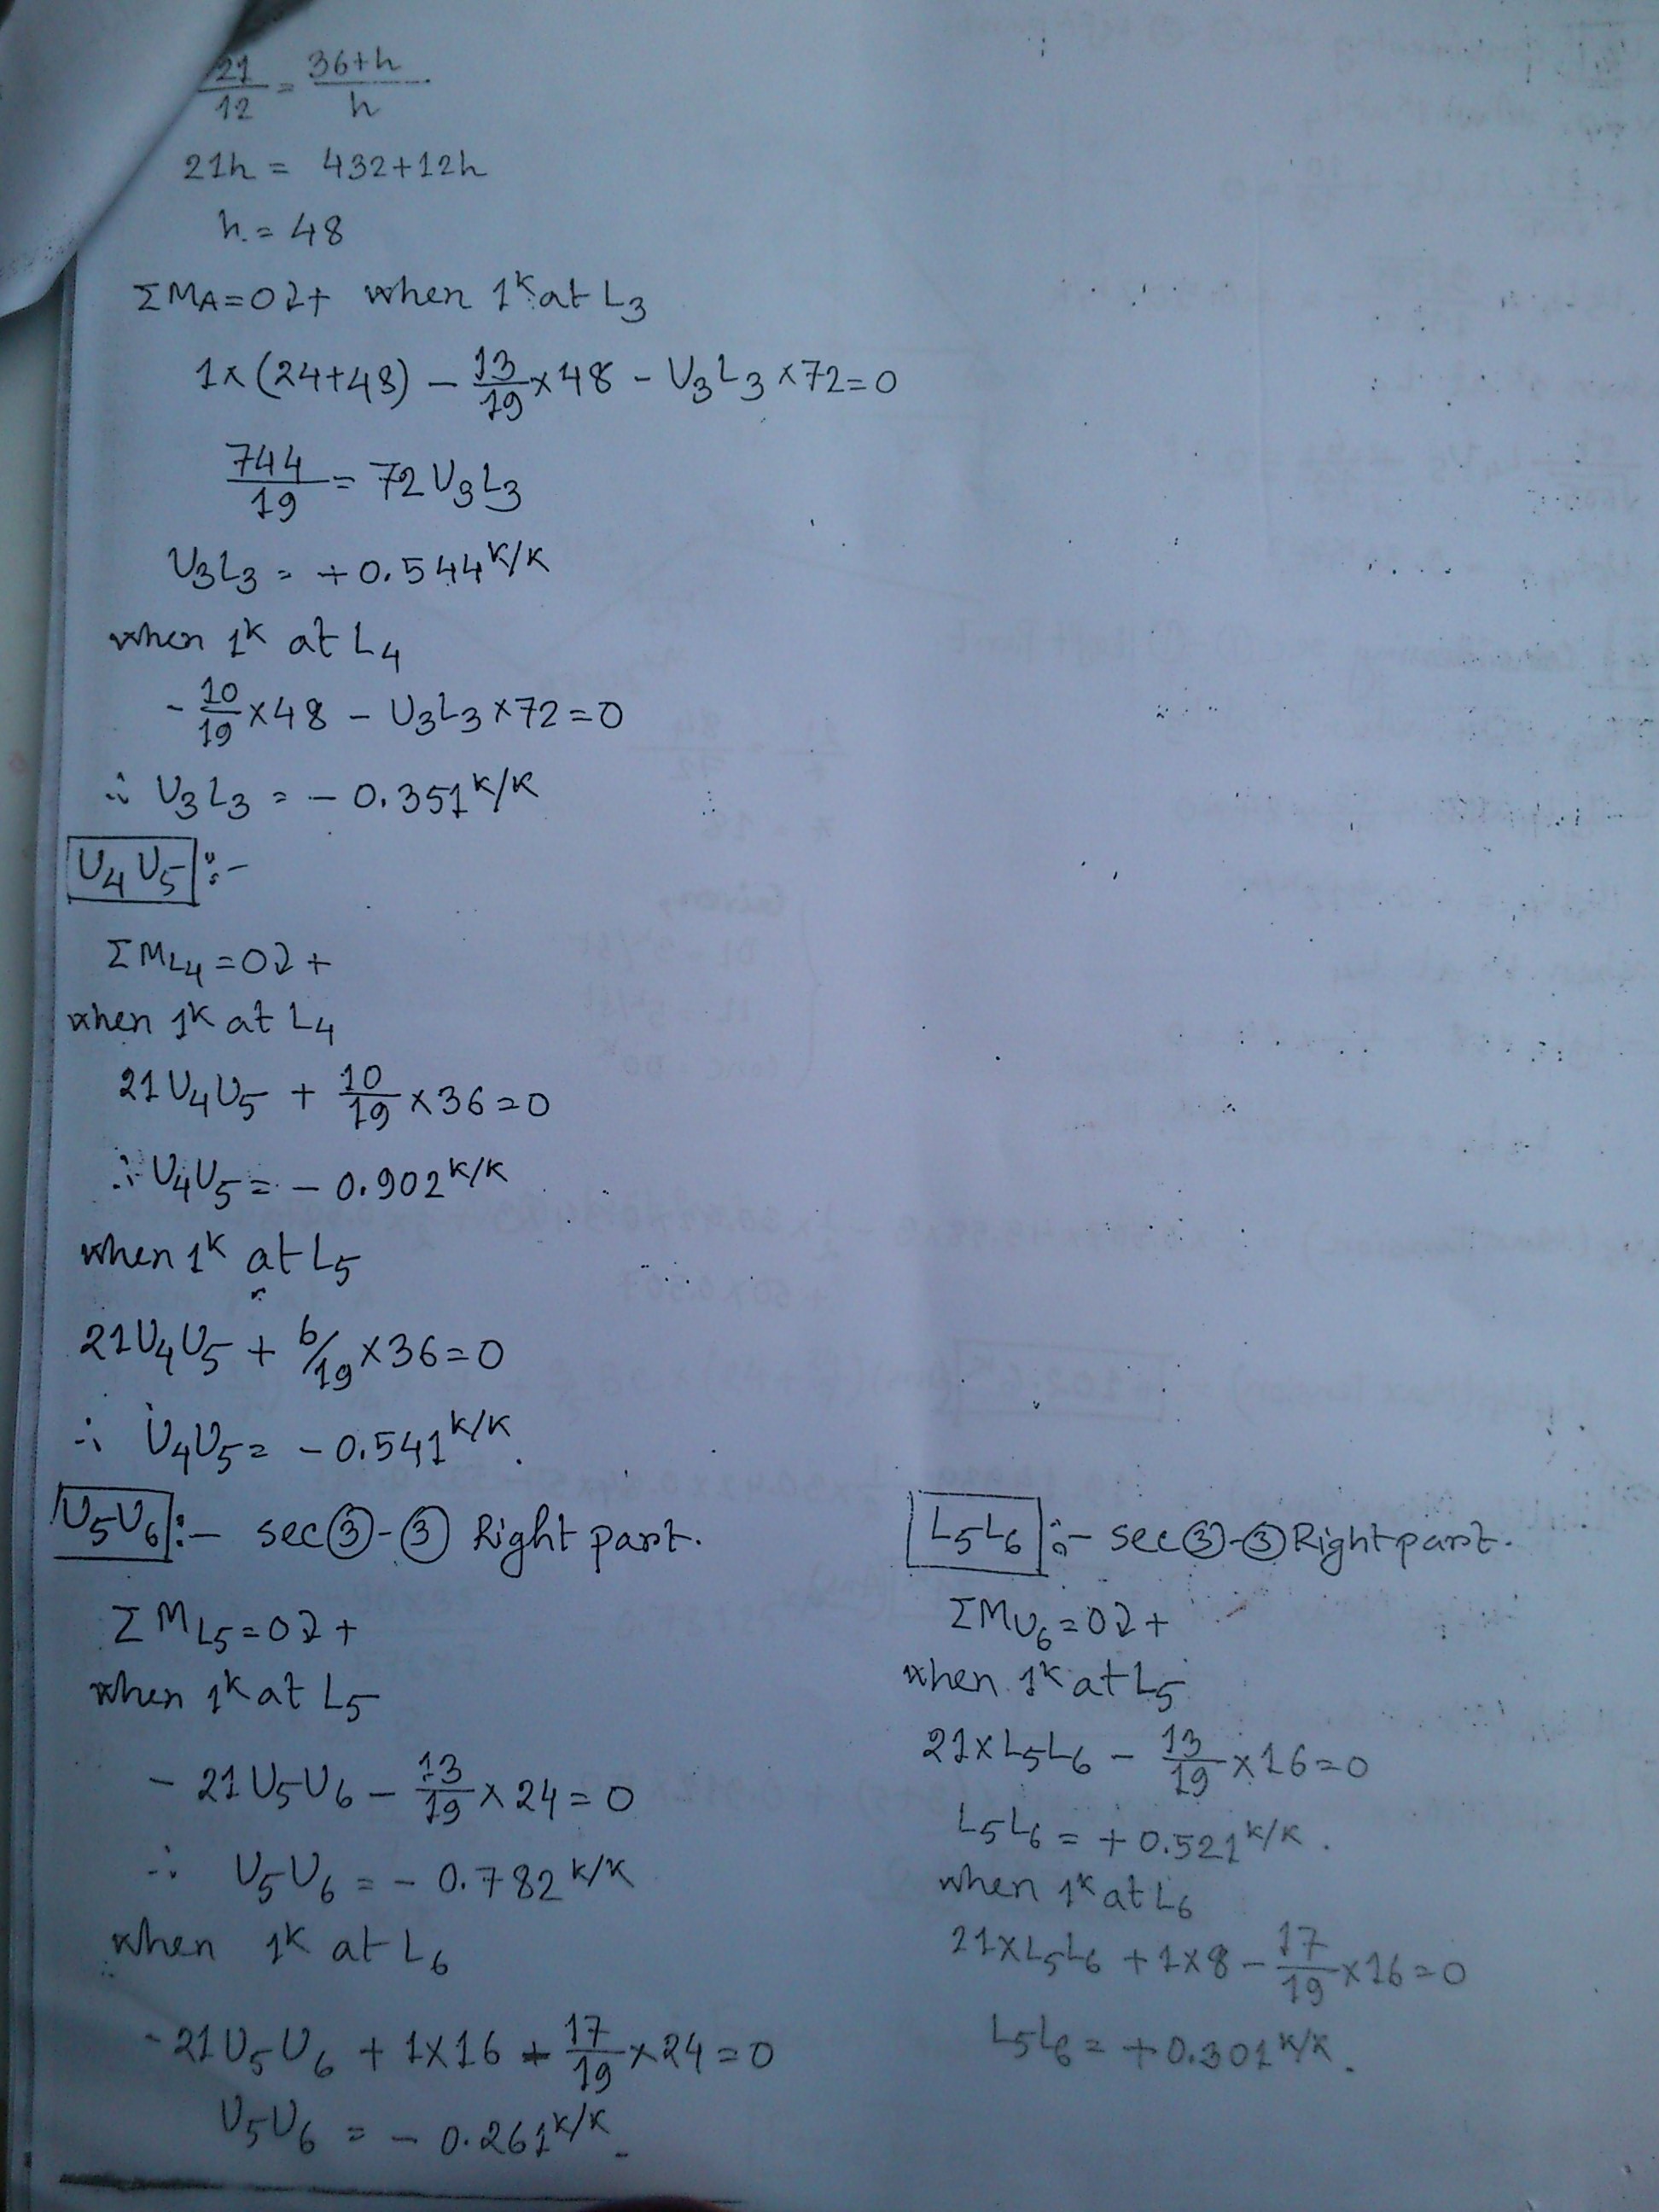 21/12 = 36+h/h
21h = 432+12h
h = 48
ΣMA=0↻+ when 1ᴷ at L₃
1×(24+48) − 13/19×48 − U₃L₃×72=0
744/19 = 72U₃L₃
U₃L₃ = +0.544ᴷ/ᴷ
when 1ᴷ at L₄
-10/19×48 − U₃L₃×72=0
∴ U₃L₃ = − 0.351ᴷ/ᴷ
U₄U₅ :-
ΣML₄=0↻+
when 1ᴷ at L₄
21U₄U₅ + 10/19×36=0
∴ U₄U₅ = − 0.902ᴷ/ᴷ
when 1ᴷ at L₅
21U₄U₅ + 6/19×36=0
∴ U₄U₅ = −0.541ᴷ/ᴷ.
U₅U₆ :− sec③-③ Right part.
ΣML₅=0↻+
when 1ᴷ at L₅
− 21U₅U₆ − 13/19×24=0
∴ U₅U₆ = − 0.782ᴷ/ᴷ
when 1ᴷ at L₆
-21U₅U₆ + 1×16 − 17/19×24=0
U₅U₆ = − 0.261ᴷ/ᴷ.
L₅L₆ :− sec③-③ Right part.
ΣMU₆=0↻+
when 1ᴷ at L₅
21×L₅L₆ − 13/19×16=0
L₅L₆ = +0.521ᴷ/ᴷ.
when 1ᴷ at L₆
21×L₅L₆ +1×8 − 17/19×16=0
L₅L₆ = +0.301ᴷ/ᴷ.